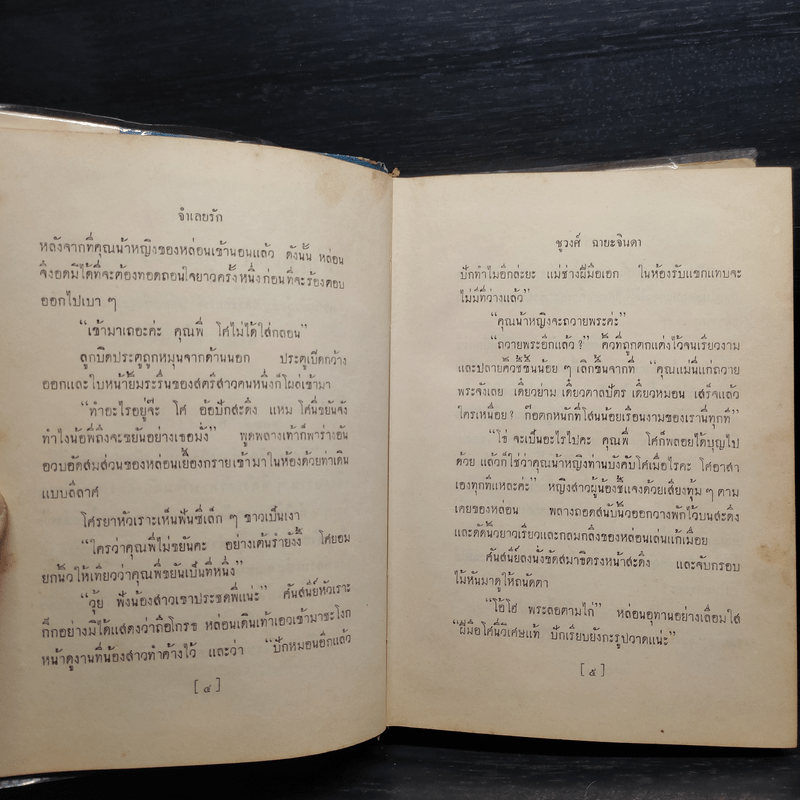 จำเลยรัก
หลังจากที่คุณน้าหญิงของหล่อนเข้านอนแล้ว ดังนั้น หล่อน
จึงอดมิได้ที่จะต้องทอดถอนใจยาวครั้งหนึ่งก่อนที่จะร้องตอบ
ออกไปเบา ๆ
“เข้ามาเถอะค่ะ คุณพี่ โศไม่ได้ใส่กลอน”
ลูกบิดประตูถูกหมุนจากด้านนอก ประตูเปิดกว้าง
ออกและใบหน้ายิ้มระรื่นของสตรีสาวคนหนึ่งก็โผล่เข้ามา
“ทำอะไรอยู่จ๊ะ โศ อ้อปักสะดึง แหม โศนี่ขยันจัง
ทำไงน้อพี่ถึงจะขยันอย่างเธอมั่ง” พูดพลางเท้าก็พาร่างอัน
อวบอัดสมส่วนของหล่อนเยื้องกรายเข้ามาในห้องด้วยท่าเดิน
แบบลีลาศ
โศรยาหัวเราะเห็นฟันซี่เล็ก ๆ ขาวเป็นเงา
“ใครว่าคุณพี่ไม่ขยันคะ อย่างเต้นรำยังงี้ โศยอม
ยกนิ้วให้เทียวว่าคุณพี่ขยันเป็นที่หนึ่ง”
“วุ้ย ฟังน้องสาวเขาประชดพี่แน่ะ” ศันสนีย์หัวเราะ
กิ๊กอย่างมิได้แสดงว่าถือโกรธ หล่อนเดินเท้าเอวเข้ามาชะโงก
หน้าดูงานที่น้องสาวทำค้างไว้ และว่า “ปักหมอนอีกแล้ว
[ ๔ ]
ชูวงศ์ ฉายะจินดา
ปักทำไมอีกล่ะยะ แม่ช่างฝีมือเอก ในห้องรับแขกแทบจะ
ไม่มีที่ว่างแล้ว”
“คุณน้าหญิงจะถวายพระค่ะ”
“ถวายพระอีกแล้ว?” คิ้วที่ถูกตกแต่งไว้จนเรียวงาม
และปลายควัรชี้ขึ้นน้อย ๆ เลิกขึ้นจากที่ “คุณแม่นี่แก่ถวาย
พระจังเลย เดี๋ยวย่าม เดี๋ยวตาลปัตร เดี๋ยวหมอน เสร็จแล้ว
ใครเหนื่อย? ก๊อตกหนักที่โสนน้อยเรือนงามของเรานี่ทุกที”
“โธ่ จะเป็นอะไรไปคะ คุณพี่ โศก็พลอยได้บุญไป
ด้วย แล้วก็ใช่ว่าคุณน้าหญิงท่านบังคับโศเมื่อไรคะ โศอาสา
เองทุกทีแหละค่ะ” หญิงสาวผู้น้องชี้แจงด้วยเสียงทุ้ม ๆ ตาม
เคยของหล่อน พลางถอดสนับนิ้วออกวางพักไว้บนสะดึง
และดัดนิ้วยาวเรียวและกลมกลึงของหล่อนเล่นแก้เมื่อย
ศันสนีย์ลงนั่งขัดสมาธิตรงหน้าสะดึง และจับกรอบ
ไม้หันมาดูให้ถนัดตา
“โอ้โฮ พระลอตามไก่” หล่อนอุทานอย่างเลื่อมใส
“ฝีมือโศนี่วิเศษแท้ ปักเรียบยังกะรูปวาดแน่ะ”
[ ๕ ]